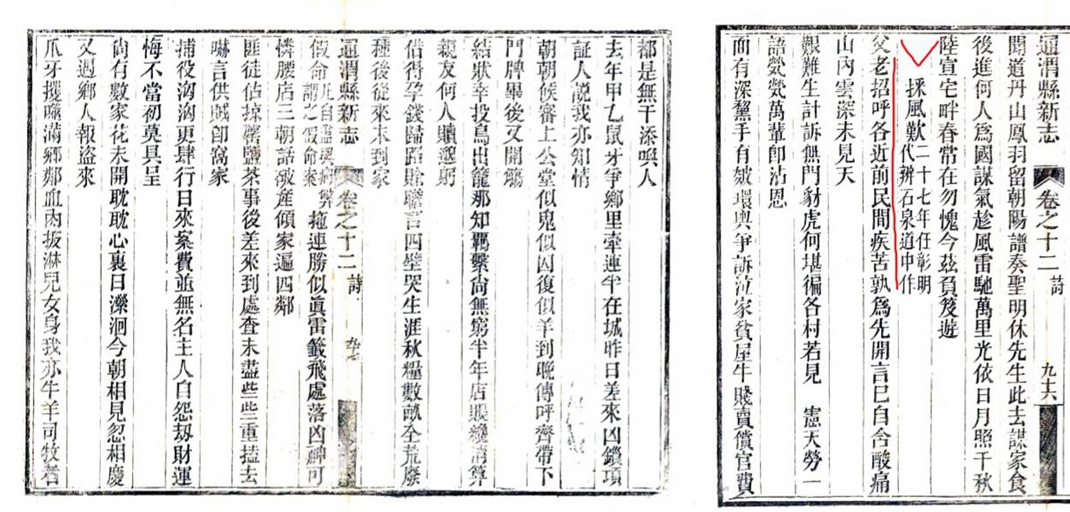 通渭縣新志
卷之十二
詩
九六
聞道丹山鳳羽留朝陽譜奏聖明休先生此去謀家食
後進何人爲國謀氣趁風雷馳萬里光依日月照千秋
陸宣宅畔春常在勿愧今茲負笈遊
採風歎二十七年任彰明
代辨石泉道中作
父老招呼各近前民間疾苦孰爲先開言已自含酸痛
山內雲深未見天
艱難生計訴無門豺虎何堪徧各村若見 憲天勞一
語煢煢萬輩卽沾恩
面有深黧手有皴環輿爭訴泣家貧屋牛賤賣償官費
都是無干添喚人
去年甲乙鼠牙爭鄉里牽連半在城昨日差來凶鎖項
証人說我亦知情
朝朝候審上公堂似鬼似囚復似羊到晚傳呼齊帶下
門牌畢後又開
結狀幸投鳥出籠那知羈繫尚無窮半年店賬纔清算
親友何人贖邈躬
借得孕錢歸路賒聯言四壁哭生涯秋糧數畝全荒廢
種後從來未到家
通渭縣新志
卷之十二
詩
九七
假命 凡自盡與病斃
謂之假命案 拖連勝似眞雷籤飛處落凶神可
憐腰店三朝話液產傾家遍四鄰
匪徒估掠 鹽茶事後差來到處查未盡些些重搕去
嚇言供賊卽窩家
捕役洶洶更肆行日來案費並無名主人自怨劫財運
悔不當初莫具呈
尙有數家花未開耽耽心裏日濚洄今朝相見忽相慶
又過鄉人報盜來
爪牙攫噬滿鄉鄰血肉扳淋兒女身我亦牛羊司牧者